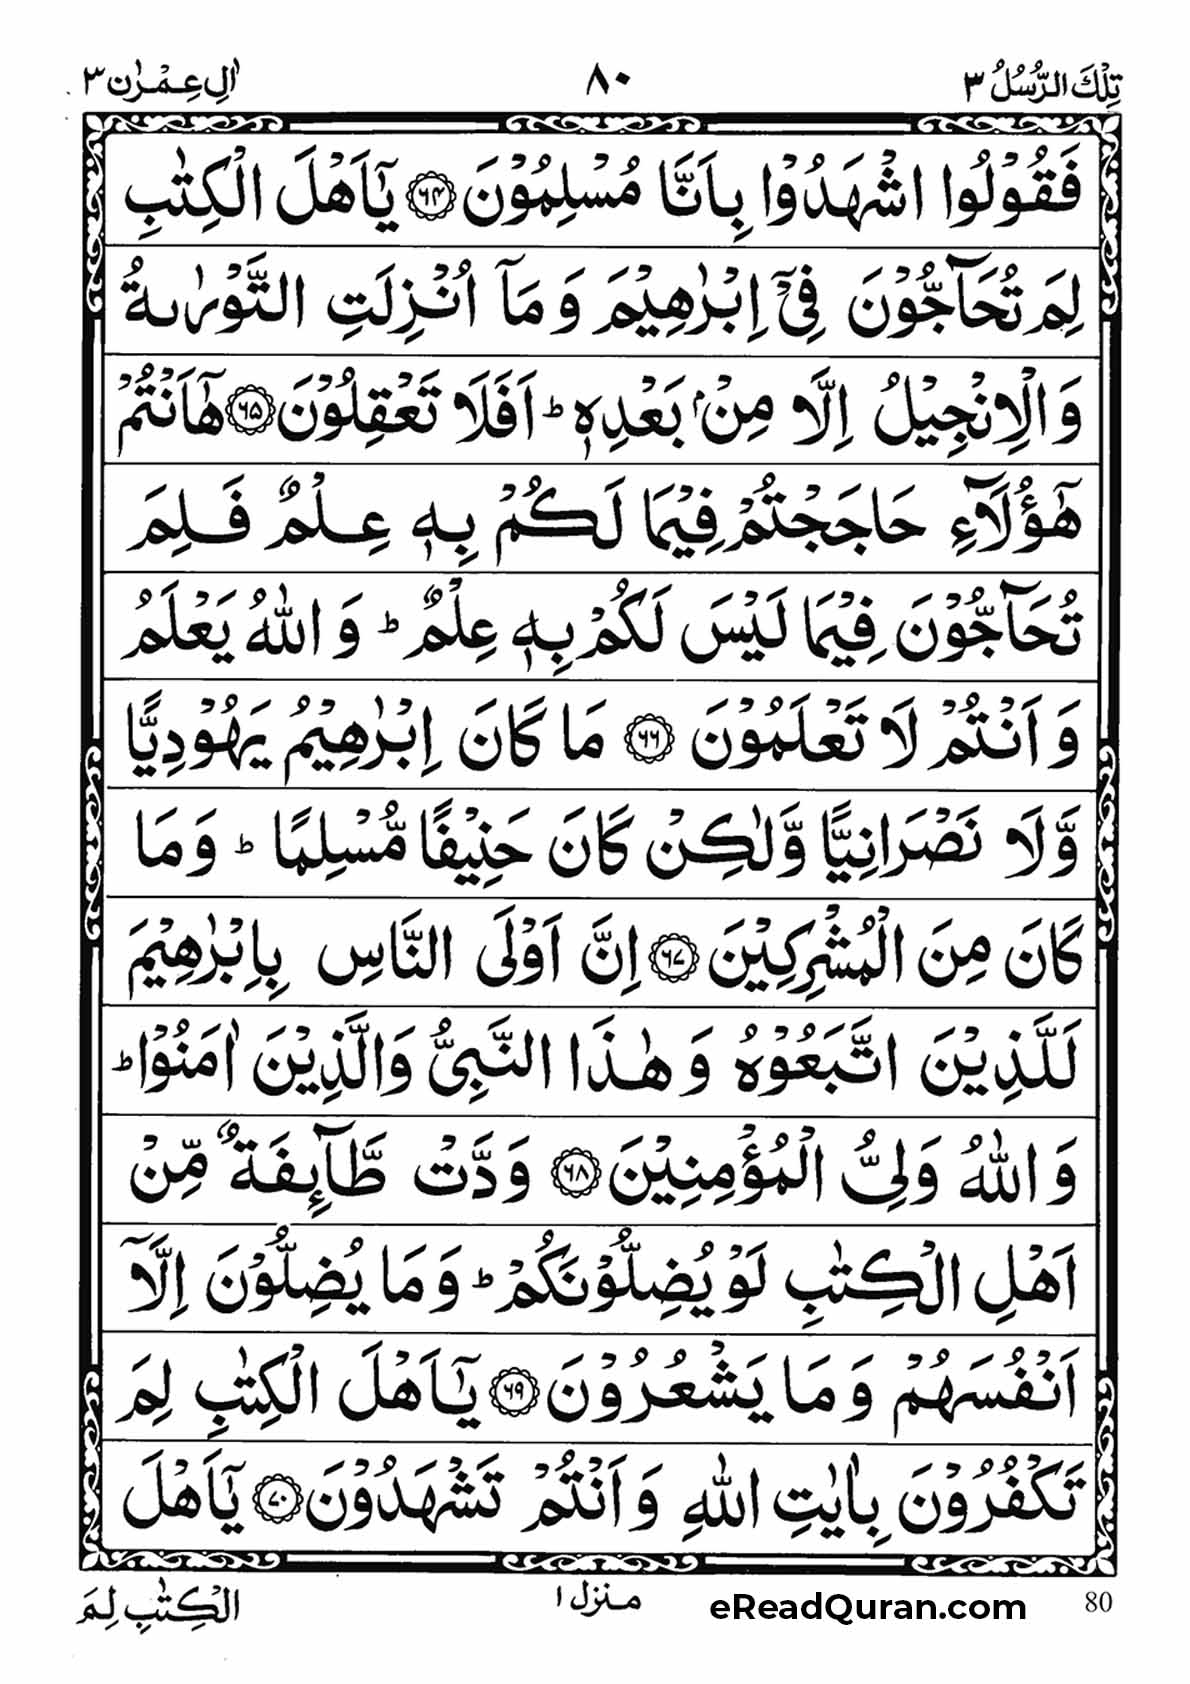 تِلْكَ الرُّسُلُ ٣
٨٠
اٰلِ عِمْرٰن ٣
فَقُوْلُوا اشْهَدُوْا بِاَنَّا مُسْلِمُوْنَ ۶۴ يٰٓاَهْلَ الْكِتٰبِ
لِمَ تُحَآجُّوْنَ فِيْٓ اِبْرٰهِيْمَ وَ مَآ اُنْزِلَتِ التَّوْرٰىةُ
وَ الْاِنْجِيْلُ اِلَّا مِنْۢ بَعْدِهٖ ؕ اَفَلَا تَعْقِلُوْنَ ۶۵ هٰٓاَنْتُمْ
هٰٓؤُلَآءِ حَاجَجْتُمْ فِيْمَا لَكُمْ بِهٖ عِلْمٌ فَلِمَ
تُحَآجُّوْنَ فِيْمَا لَيْسَ لَكُمْ بِهٖ عِلْمٌ ؕ وَ اللّٰهُ يَعْلَمُ
وَ اَنْتُمْ لَا تَعْلَمُوْنَ ۶۶ مَا كَانَ اِبْرٰهِيْمُ يَهُوْدِيًّا
وَّ لَا نَصْرَانِيًّا وَّلٰكِنْ كَانَ حَنِيْفًا مُّسْلِمًا ؕ وَ مَا
كَانَ مِنَ الْمُشْرِكِيْنَ ۶۷ اِنَّ اَوْلَى النَّاسِ بِاِبْرٰهِيْمَ
لَلَّذِيْنَ اتَّبَعُوْهُ وَ هٰذَا النَّبِيُّ وَ الَّذِيْنَ اٰمَنُوْا ؕ
وَ اللّٰهُ وَلِيُّ الْمُؤْمِنِيْنَ ۶۸ وَدَّتْ طَّآىِٕفَةٌ مِّنْ
اَهْلِ الْكِتٰبِ لَوْ يُضِلُّوْنَكُمْ ؕ وَ مَا يُضِلُّوْنَ اِلَّآ
اَنْفُسَهُمْ وَ مَا يَشْعُرُوْنَ ۶۹ يٰٓاَهْلَ الْكِتٰبِ لِمَ
تَكْفُرُوْنَ بِاٰيٰتِ اللّٰهِ وَ اَنْتُمْ تَشْهَدُوْنَ ۷۰ يٰٓاَهْلَ
80
eReadQuran.com
منزل ١
الْكِتٰبِ لِمَ